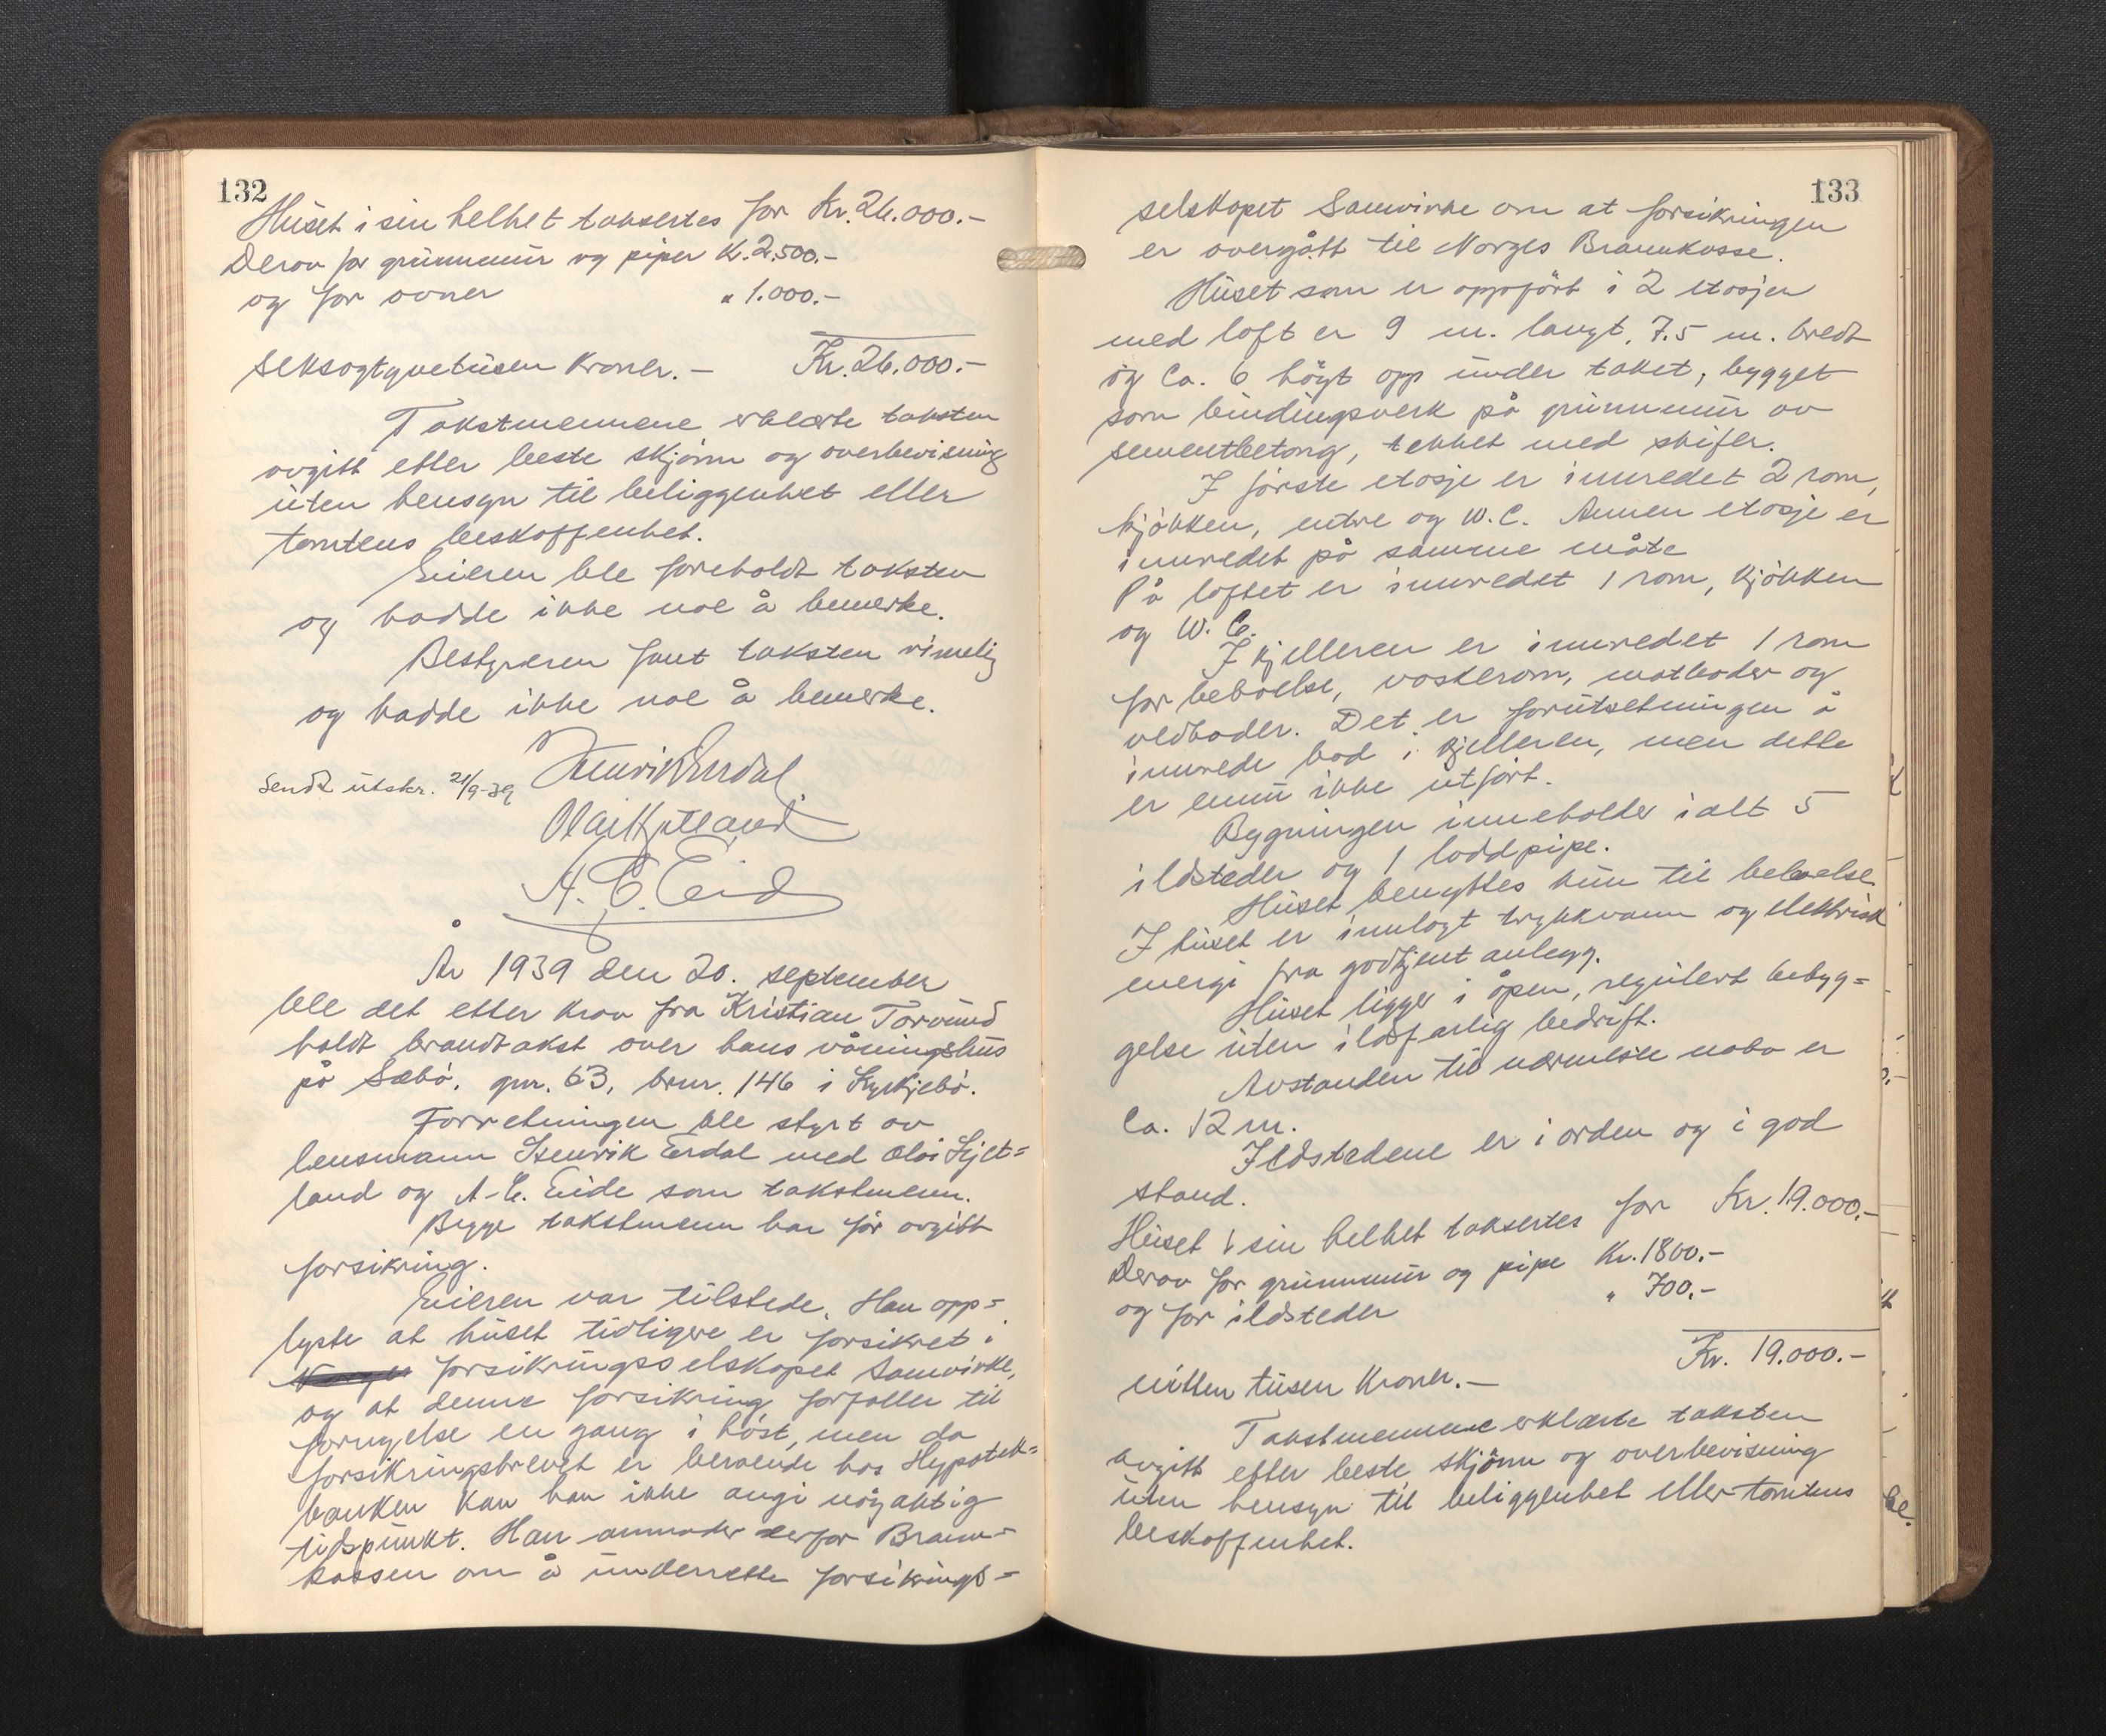 132
Huset i sin helhet takseres for Kr. 26.000.-
Derav for grunnmur og piper Kr. 2.500.-
og for ovner " 1.000.-
seksogtyvetusen kroner. - Kr. 26.000.-
Takstmennene erklærte taksten
avgitt etter beste skjönn og overbevisning
uten hensyn til beliggenhet eller
tomtens beskaffenhet.
Eieren ble foreholdt taksten
og hadde ikke noe å bemerke.
Bestyreren fant taksten rimelig
og hadde ikke noe å bemerke.
Sendt utskr. 21/9-39 Henrik Erdal
Olai Kjetland
A. E. Eide
År 1939 den 20. september
ble det etter krav fra Kristian Torvund
holdt brandtakst over hans våningshus
på Sæbö, gnr. 63, brnr. 146 i Kyrkjebö.
Forretningen ble styrt av
lensmann Henrik Erdal med Olai Kjet=
land og A. E. Eide som takstmenn.
Begge takstmenn har för avgitt
forsikring.
Eieren var tilstede. Han opp=
lyste at huset tidligere er forsikret i
Norges forsikringsselskapet Samvirke,
og at denne forsikring forfaller til
fornyelse en gang i höst, men da
forsikringsbrevet er beroende hos Hypotek=
banken kan han ikke angi nöyaktig
tidspunkt. Han anmoder derfor Brann=
kassen om å underrette forsikrings=
133
selskapet Samvirke om at forsikringen
er overgått til Norges Brannkasse.
Huset som er oppfört i 2 etasjer
med loft er 9 m. langt, 7.5 m. bredt
og ca. 6 höyt opp under taket, bygget
som bindingsverk på grunnmur av
sementbetong, tekket med skifer.
I förste etasje er innredet 2 rom,
kjökken, entre og W.C. Annen etasje er
innredet på samme måte
På loftet er innredet 1 rom, kjökken
og W. C.
I kjelleren er innredet 1 rom
for beboelse, vaskerom, matboder og
vedboder. Det er forutsetningen å
innrede bad i kjelleren, men dette
er ennu ikke utfört.
Bygningen inneholder ialt 5
ildsteder og 1 loddpipe.
Huset benyttes kun til beboelse.
I huset er innlagt trykkvann og elektrisk
energi fra godkjent anlegg.
Huset ligger i åpen, regulert bebyg=
gelse uten ildsfarlig bedrift.
Avstanden til nærmeste nabo er
ca. 12 m.
Ildstedene er i orden og i god
stand.
Huset i sin helhet takseres for Kr. 19.000.-
Derav for grunnmur og pipe Kr. 1800.-
og for ildsteder " 700.-
Kr. 19.000.-
nitten tusen kroner. -
Takstmennene erklærte taksten
avgitt efter beste skjönn og overbevisning
uten hensyn til beliggenhet eller tomtens
beskaffenhet.